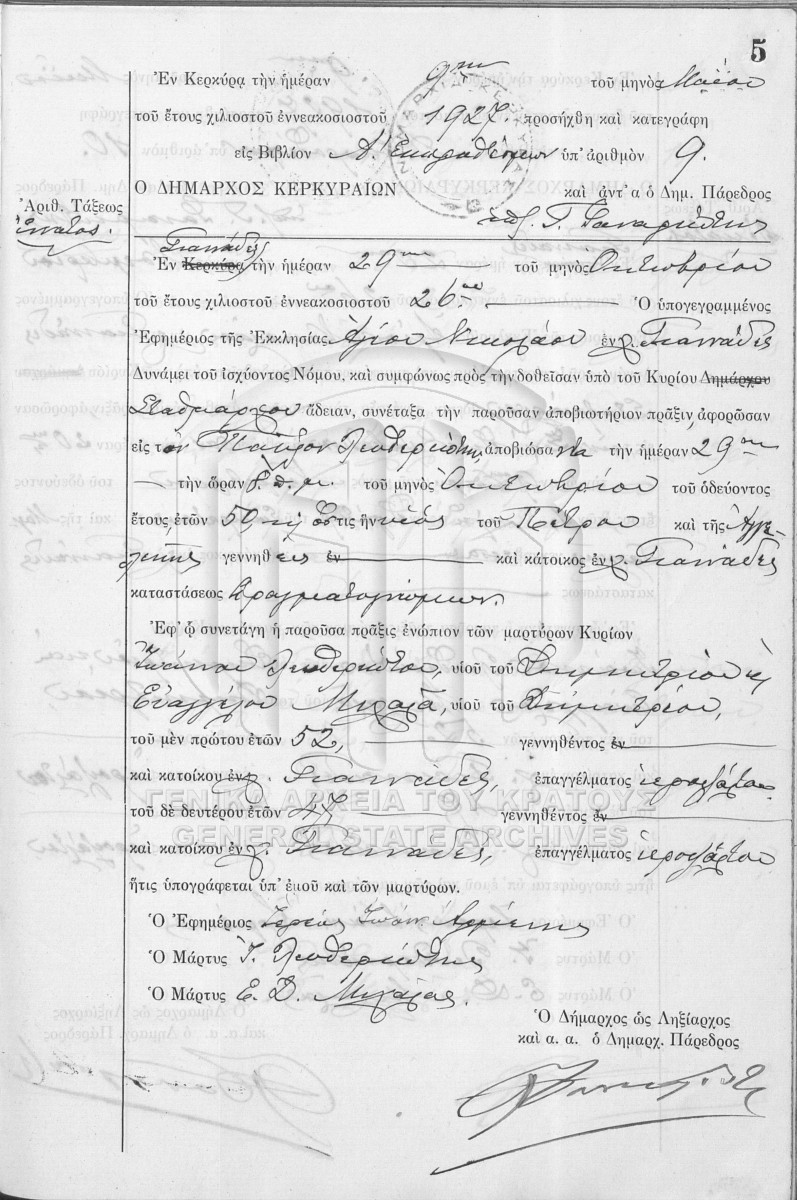 5
Ἐν Κερκύρᾳ τὴν ἡμέραν 9ην τοῦ μηνὸς Μαΐου
τοῦ ἔτους χιλιοστοῦ ἐννεακοσιοστοῦ 1927 προσήχθη καὶ κατεγράφη
εἰς Βιβλίον Α. ὑπ' ἀριθμὸν 9.
Ο ΔΗΜΑΡΧΟΣ ΚΕΡΚΥΡΑΙΩΝ καὶ ἀντ' α ὁ Δημ. Πάρεδρος
Ἀριθ. Τάξεως
ἔννατος.
Γιαννάδες
Ἐν Κερκύρᾳ τὴν ἡμέραν 29ην τοῦ μηνὸς Ὀκτωβρίου
τοῦ ἔτους χιλιοστοῦ ἐννεακοσιοστοῦ 26ου Ὁ ὑπογεγραμμένος
Ἐφημέριος τῆς Ἐκκλησίας Ἁγίου Νικολάου ἐν χ. Γιαννάδες
Δυνάμει τοῦ ἰσχύοντος Νόμου, καὶ συμφώνως πρὸς τὴν δοθεῖσαν ὑπὸ τοῦ Κυρίου Δημάρχου
Σταθμάρχου ἄδειαν, συνέταξα τὴν παροῦσαν ἀποβιωτήριον πρᾶξιν ἀφορῶσαν
εἰς τὸν Παῦλον Λευθεριώτην ἀποβιώσαντα τὴν ἡμέραν 29ην
τὴν ὥραν 8 π. μ. τοῦ μηνὸς Ὀκτωβρίου τοῦ ὁδεύοντος
ἔτους, ἐτῶν 50 ὅστις ἦν υἱὸς τοῦ Πέτρου καὶ τῆς Ἀγγε-
λικῆς γεννηθεὶς ἐν καὶ κάτοικος ἐν χ. Γιαννάδες
καταστάσεως
Ἐφ' ᾧ συνετάγη ἡ παροῦσα πρᾶξις ἐνώπιον τῶν μαρτύρων Κυρίων
Ἰωάννου Λευθεριώτου, υἱοῦ τοῦ Δημητρίου κ
Εὐαγγέλου Μιχαλᾶ, υἱοῦ τοῦ Δημητρίου,
τοῦ μὲν πρώτου ἐτῶν 52, γεννηθέντος ἐν
καὶ κατοίκου ἐν χ. Γιαννάδες, ἐπαγγέλματος ἱεροψάλτου
τοῦ δὲ δευτέρου ἐτῶν 47 γεννηθέντος ἐν
καὶ κατοίκου ἐν χ. Γιαννάδες, ἐπαγγέλματος ἱεροψάλτου
ἥτις ὑπογράφεται ὑπ' ἐμοῦ καὶ τῶν μαρτύρων.
Ὁ Ἐφημέριος Ἱερεὺς Ἰωάν.
Ὁ Μάρτυς Ἰ. Λευθεριώτης
Ὁ Μάρτυς Ε. Δ. Μιχαλᾶς.
Ὁ Δήμαρχος ὡς Ληξίαρχος
καὶ α. α. ὁ Δημαρχ. Πάρεδρος
ΓΕΝΙΚΑ ΑΡΧΕΙΑ ΤΟΥ ΚΡΑΤΟΥΣ
GENERAL STATE ARCHIVES